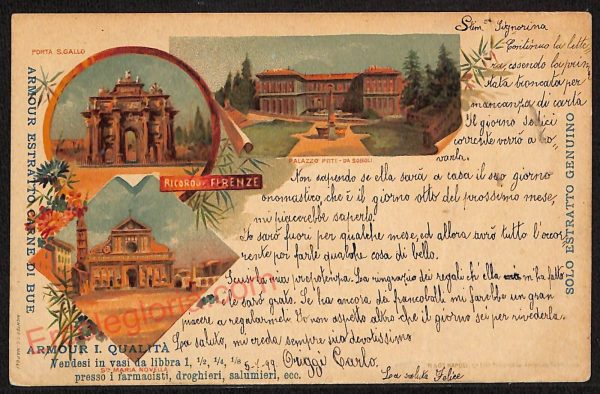 PORTA S. GALLO
PALAZZO PITTI - DA BOBOLI
RICORDO DI FIRENZE
STA MARIA NOVELLA
ARMOUR ESTRATTO CARNE DI BUE
SOLO ESTRATTO GENUINO
ARMOUR I. QUALITÀ
Vendesi in vasi da libbra 1, 1/2, 1/4, 1/8
presso i farmacisti, droghieri, salumieri, ecc.
Stim.ma Signorina
Continuo la lette
ra essendo la prin
tata troncata per
mancanza di carta
Il giorno sedici
corrente verrò a tro
varla.
Non sapendo se ella sarà a casa il suo giorno
onomastico, che è il giorno otto del prossimo mese,
mi piacerebbe saperlo.
Io sarò fuori per qualche mese, ed allora avrò tutto l'occor
rente per farle qualche cosa di bello.
Scusi la mia prepotenza. La ringrazio dei regali ch'ella mi ha fatto
e le sarò grato. Se ha ancora da francobolli mi farebbe un gran
piacere a regalarmeli. Io non aspetto altro che il giorno sei per rivederla.
La saluto, mi creda sempre suo devotissimo
5-7-99 Origgi Carlo.
La saluta Felice
Emilegloria.com